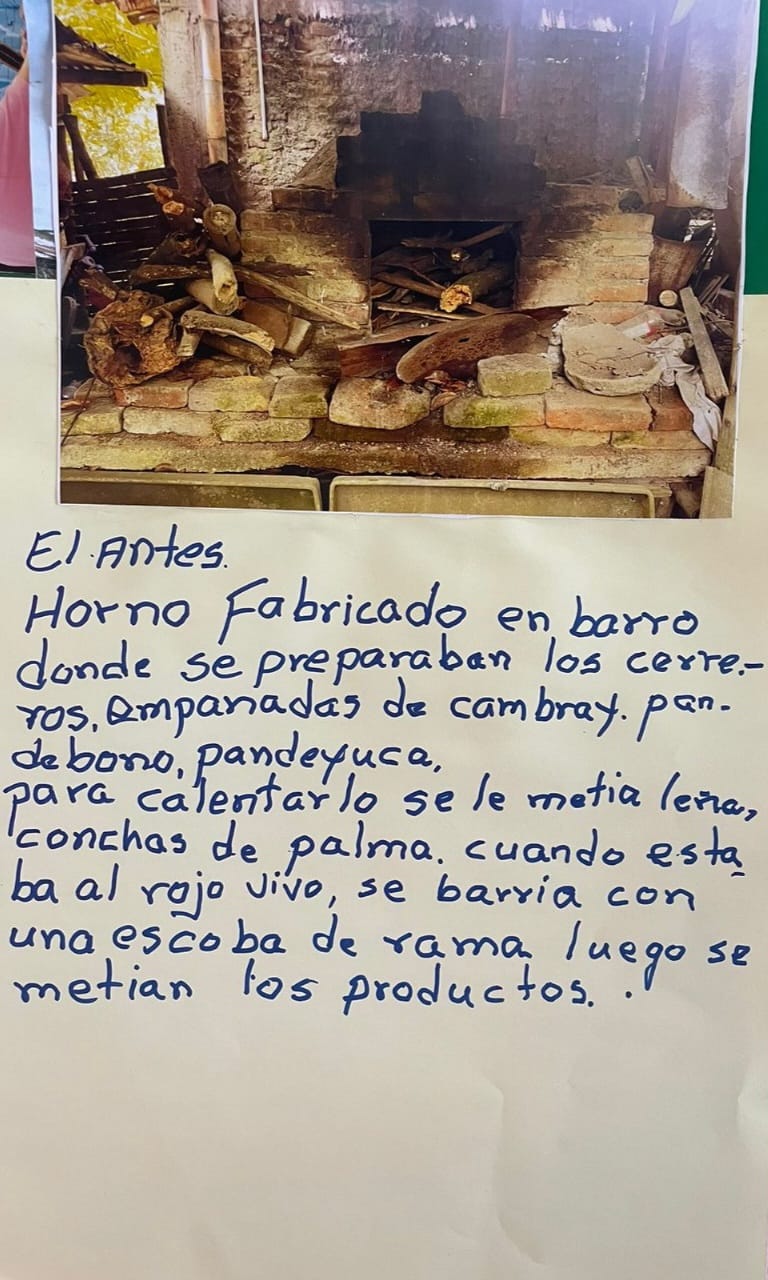 El Antes.
Horno Fabricado en barro
donde se preparaban los cerre-
ros, empanadas de cambray. pan-
debono, pandeyuca,
para calentarlo se le metia leña,
conchas de palma. cuando esta
ba al rojo vivo, se barria con
una escoba de rama luego se
metian los productos.